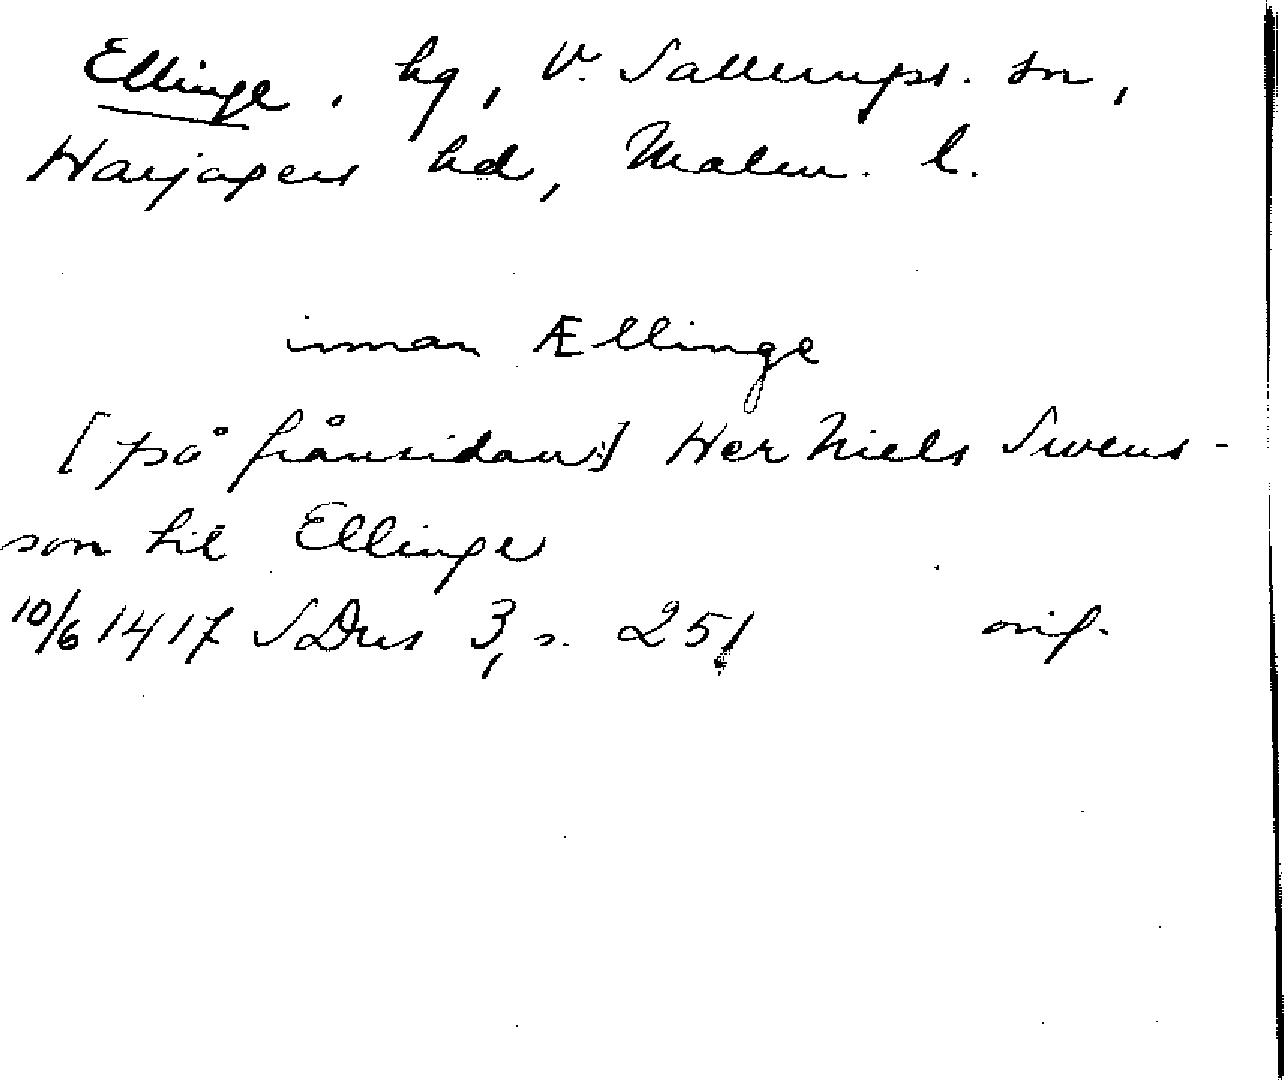 Ellinge, hg, V. Sallerups. sn,
Harjagers hd, Malm. l.
innan Ællinge
[på frånsidan:] Her Niels Swens-
son til Ellinge
10/6 1417 SDns 3, s. 251 orig.